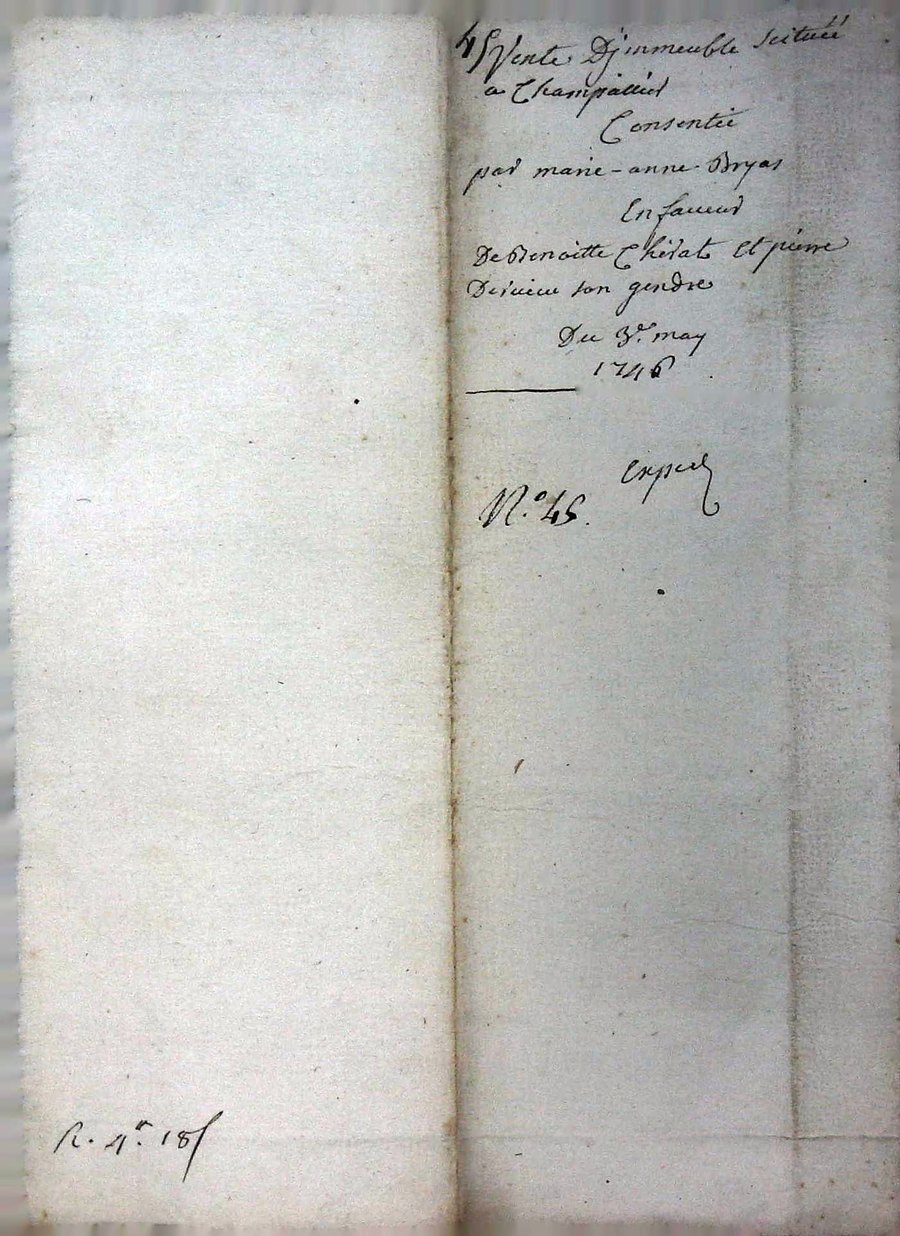 45 Vente Djmmeuble scituéé
a Champallier
Consentie
par marie-anne Bryas
En faveur
De Benoitte Chirat Et pierre
son gendre
Du 3e. may
1746
Exped
N.o 45.
R. 4tt. 18s